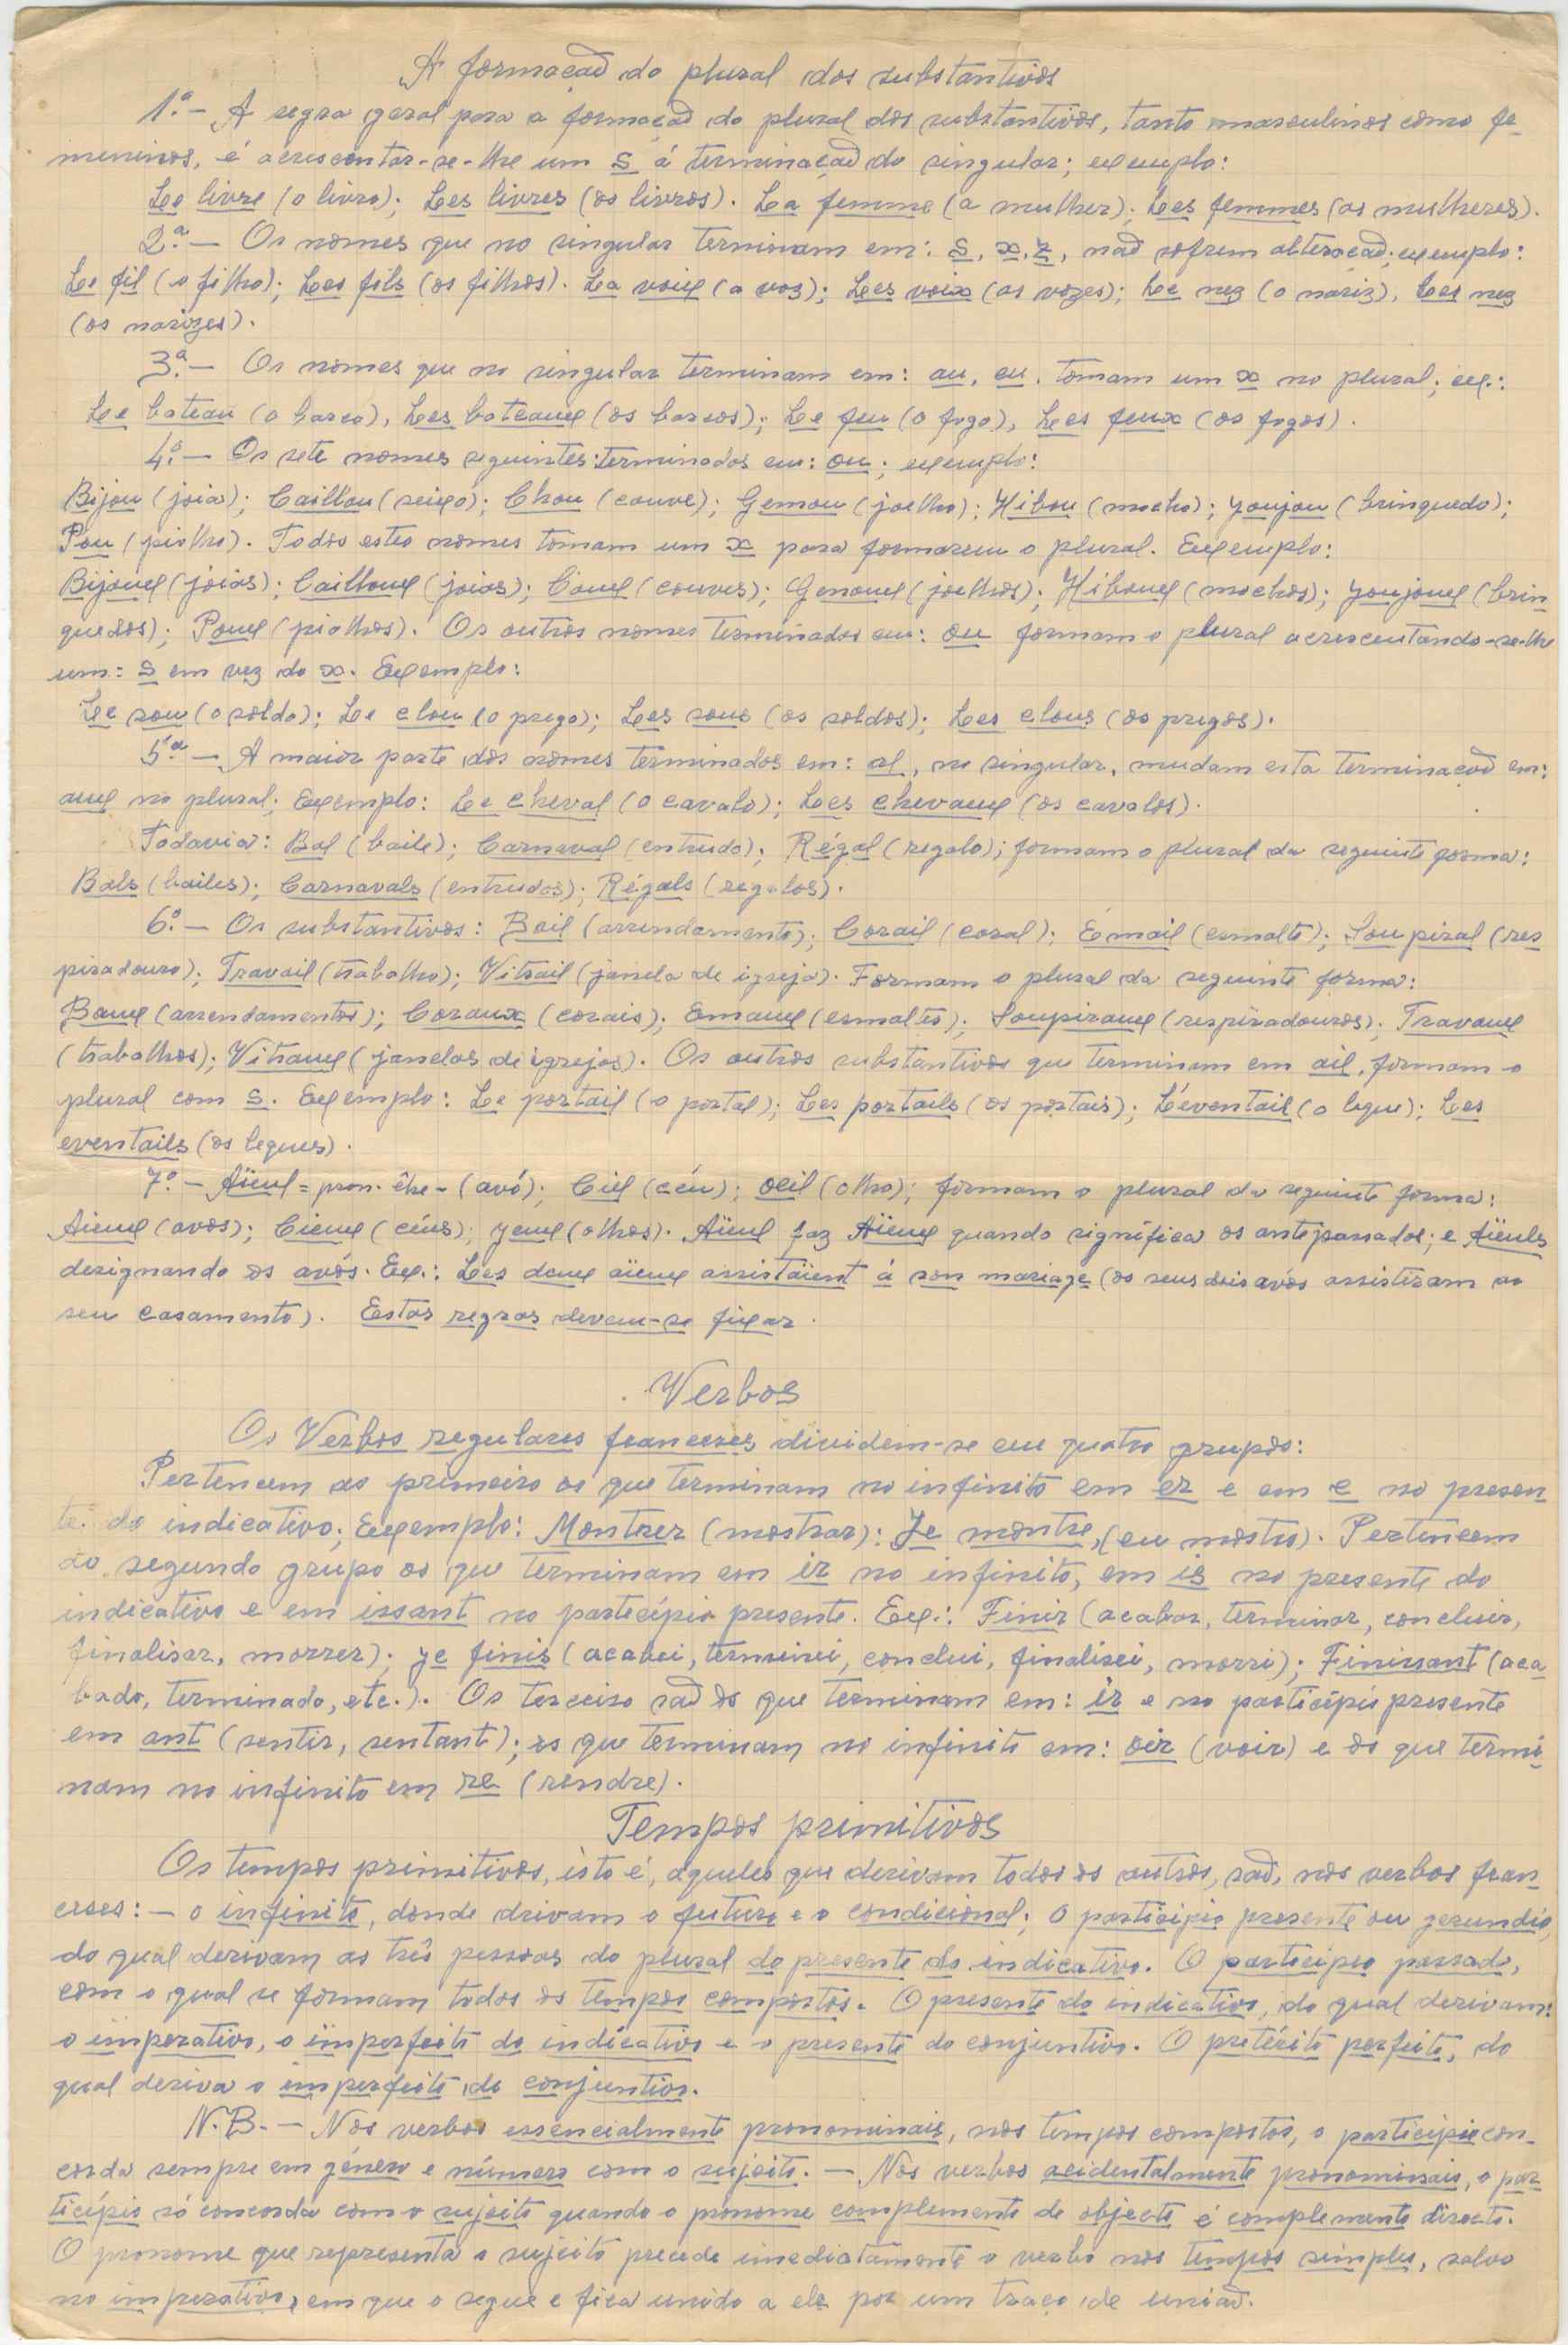 A formação do plural dos substantivos
1.ª - A regra geral para a formação do plural dos substantivos, tanto masculinos como fe-
meninos, é acrescentar-se-lhe um s á terminação do singular; exemplo:
Le livre (o livro); Les livres (os livros). La femme (a mulher); Les femmes (as mulheres).
2.ª - Os nomes que no singular terminam em: s, x, z, não sofrem alteração; exemplo:
Le fil (o filho); Les fils (os filhos). La voix (a voz); Les voix (as vozes); Le nez (o nariz), Les nez
(os narizes).
3.ª - Os nomes que no singular terminam em: au, eu, tomam um x no plural; ex.:
Le bateau (o barco), Les bateaux (os barcos); Le feu (o fogo), Les feux (os fogos).
4.ª - Os sete nomes seguintes: terminados em: ou; exemplo:
Bijou (joia); Caillou (seixo); Chou (couve); Genou (joelho); Hibou (mocho); Joujou (brinquedo);
Pou (piolho). Todos estes nomes tomam um x para formarem o plural. Exemplo:
Bijoux (joias); Cailloux (joias); Coux (couves); Genoux (joelhos); Hiboux (mochos); Joujoux (brin
quedos); Poux (piolhos). Os outros nomes terminados em: ou formam o plural acrescentando-se-lhe
um: s em vez do x. Exemplo:
Le sou (o soldo); Le clou (o prego); Les sous (os soldos); Les clous (os pregos).
5.ª - A maior parte dos nomes terminados em: al, no singular, mudam esta terminação em:
aux no plural; Exemplo: Le cheval (o cavalo); Les chevaux (os cavalos).
Todavia: Bal (baile); Carnaval (entrudo); Régal (regalo); formam o plural da seguinte forma:
Bals (bailes); Carnavals (entrudos); Régals (regalos).
6.ª - Os substantivos: Bail (arrendamento); Corail (coral); Émail (esmalte); Soupiral (res
piradouro); Travail (trabalho); Vitrail (janela de igreja). Formam o plural da seguinte forma:
Baux (arrendamentos); Coraux (corais); Emaux (esmaltes); Soupiraux (respiradouros); Travaux
(trabalhos); Vitraux (janelas de igrejas). Os outros substantivos que terminam em ail, formam o
plural com s. Exemplo: Le portail (o portal); Les portails (os portais); L'éventail (o leque); Les
eventails (os leques).
7.ª - Aïeul = pron. êhe - (avó); Ciel (céu); oeil (olho); formam o plural da seguinte forma:
Aieux (avos); Cieux (céus); yeux (olhos). Aïeul faz Aïeux quando significa os antepassados; e Aïeuls
designando os avós. Ex.: Les deux aïeux assistäient á son mariage (os seus dois avós assistiram ao
seu casamento). Estas regras devem-se fixar.
Verbos
Os Verbos regulares franceses dividem-se em quatro grupos:
Pertencem ao primeiro os que terminam no infinito em er e em e no presen
te do indicativo; Exemplo: Montrer (mostrar): Je montre, (eu mostro). Pertencem
ao segundo grupo os que terminam em ir no infinito, em is no presente do
indicativo e em issant no particípio presente. Ex.: Finir (acabar, terminar, concluir,
finalisar, morrer); je finis (acabei, terminei, conclui, finalisei, morri); Finissant (aca
bado, terminado, etc.). Os terceiro são os que terminam em: ir e no particípio presente
em ant (sentir, sentant); os que terminam no infinito em: oir (voir) e os que termi
nam no infinito em re (rendre).
Tempos primitivos
Os tempos primitivos, isto é, aqueles que derivam todos os outros, são, nos verbos fran-
ceses: - o infinito, donde drivam o futuro e o condicional; o particípio presente ou gerundio,
do qual derivam as três pessoas do plural do presente do indicativo. O particípio passado,
com o qual se formam todos os tempos compostos. O presente do indicativo, do qual derivam:
o imperativo, o imperfeito do indicativo e o presente do conjuntivo. O pretérito perfeito, do
qual deriva o imperfeito do conjuntivo.
N.B. - Nos verbos essencialmente pronominais, nos tempos compostos, o particípio con-
corda sempre em género e número com o sujeito. - Nos verbos acidentalmente pronominais, o par
ticípio só concorda com o sujeito quando o pronome complemento de objecto é complemento directo.
O pronome que representa o sujeito precede imediatamente o verbo nos tempos simples, salvo
no imperativo, em que o segue e fica unido a ele por um traço de união.